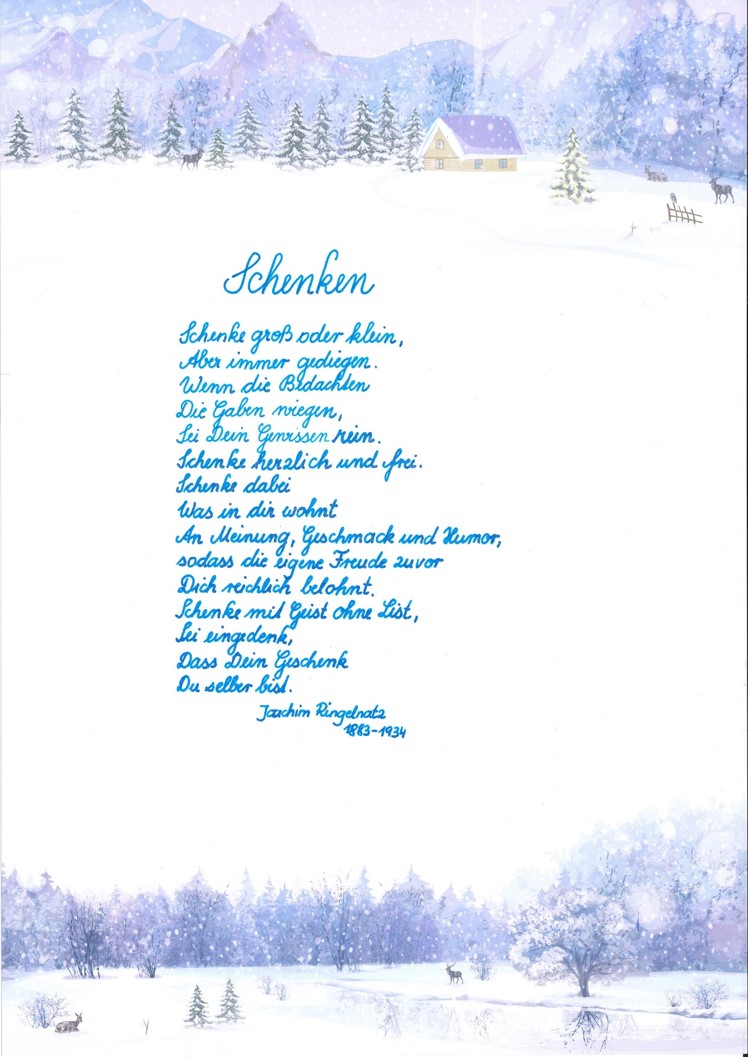 Schenken
Schenke groß oder klein,
Aber immer gediegen.
Wenn die Bedachten
Die Gaben wiegen,
Sei Dein Gewissen rein.
Schenke herzlich und frei.
Schenke dabei
Was in dir wohnt
An Meinung, Geschmack und Humor,
sodass die eigene Freude zuvor
Dich reichlich belohnt.
Schenke mit Geist ohne List,
Sei eingedenk,
Dass Dein Geschenk
Du selber bist.
Joachim Ringelnatz
1883-1934